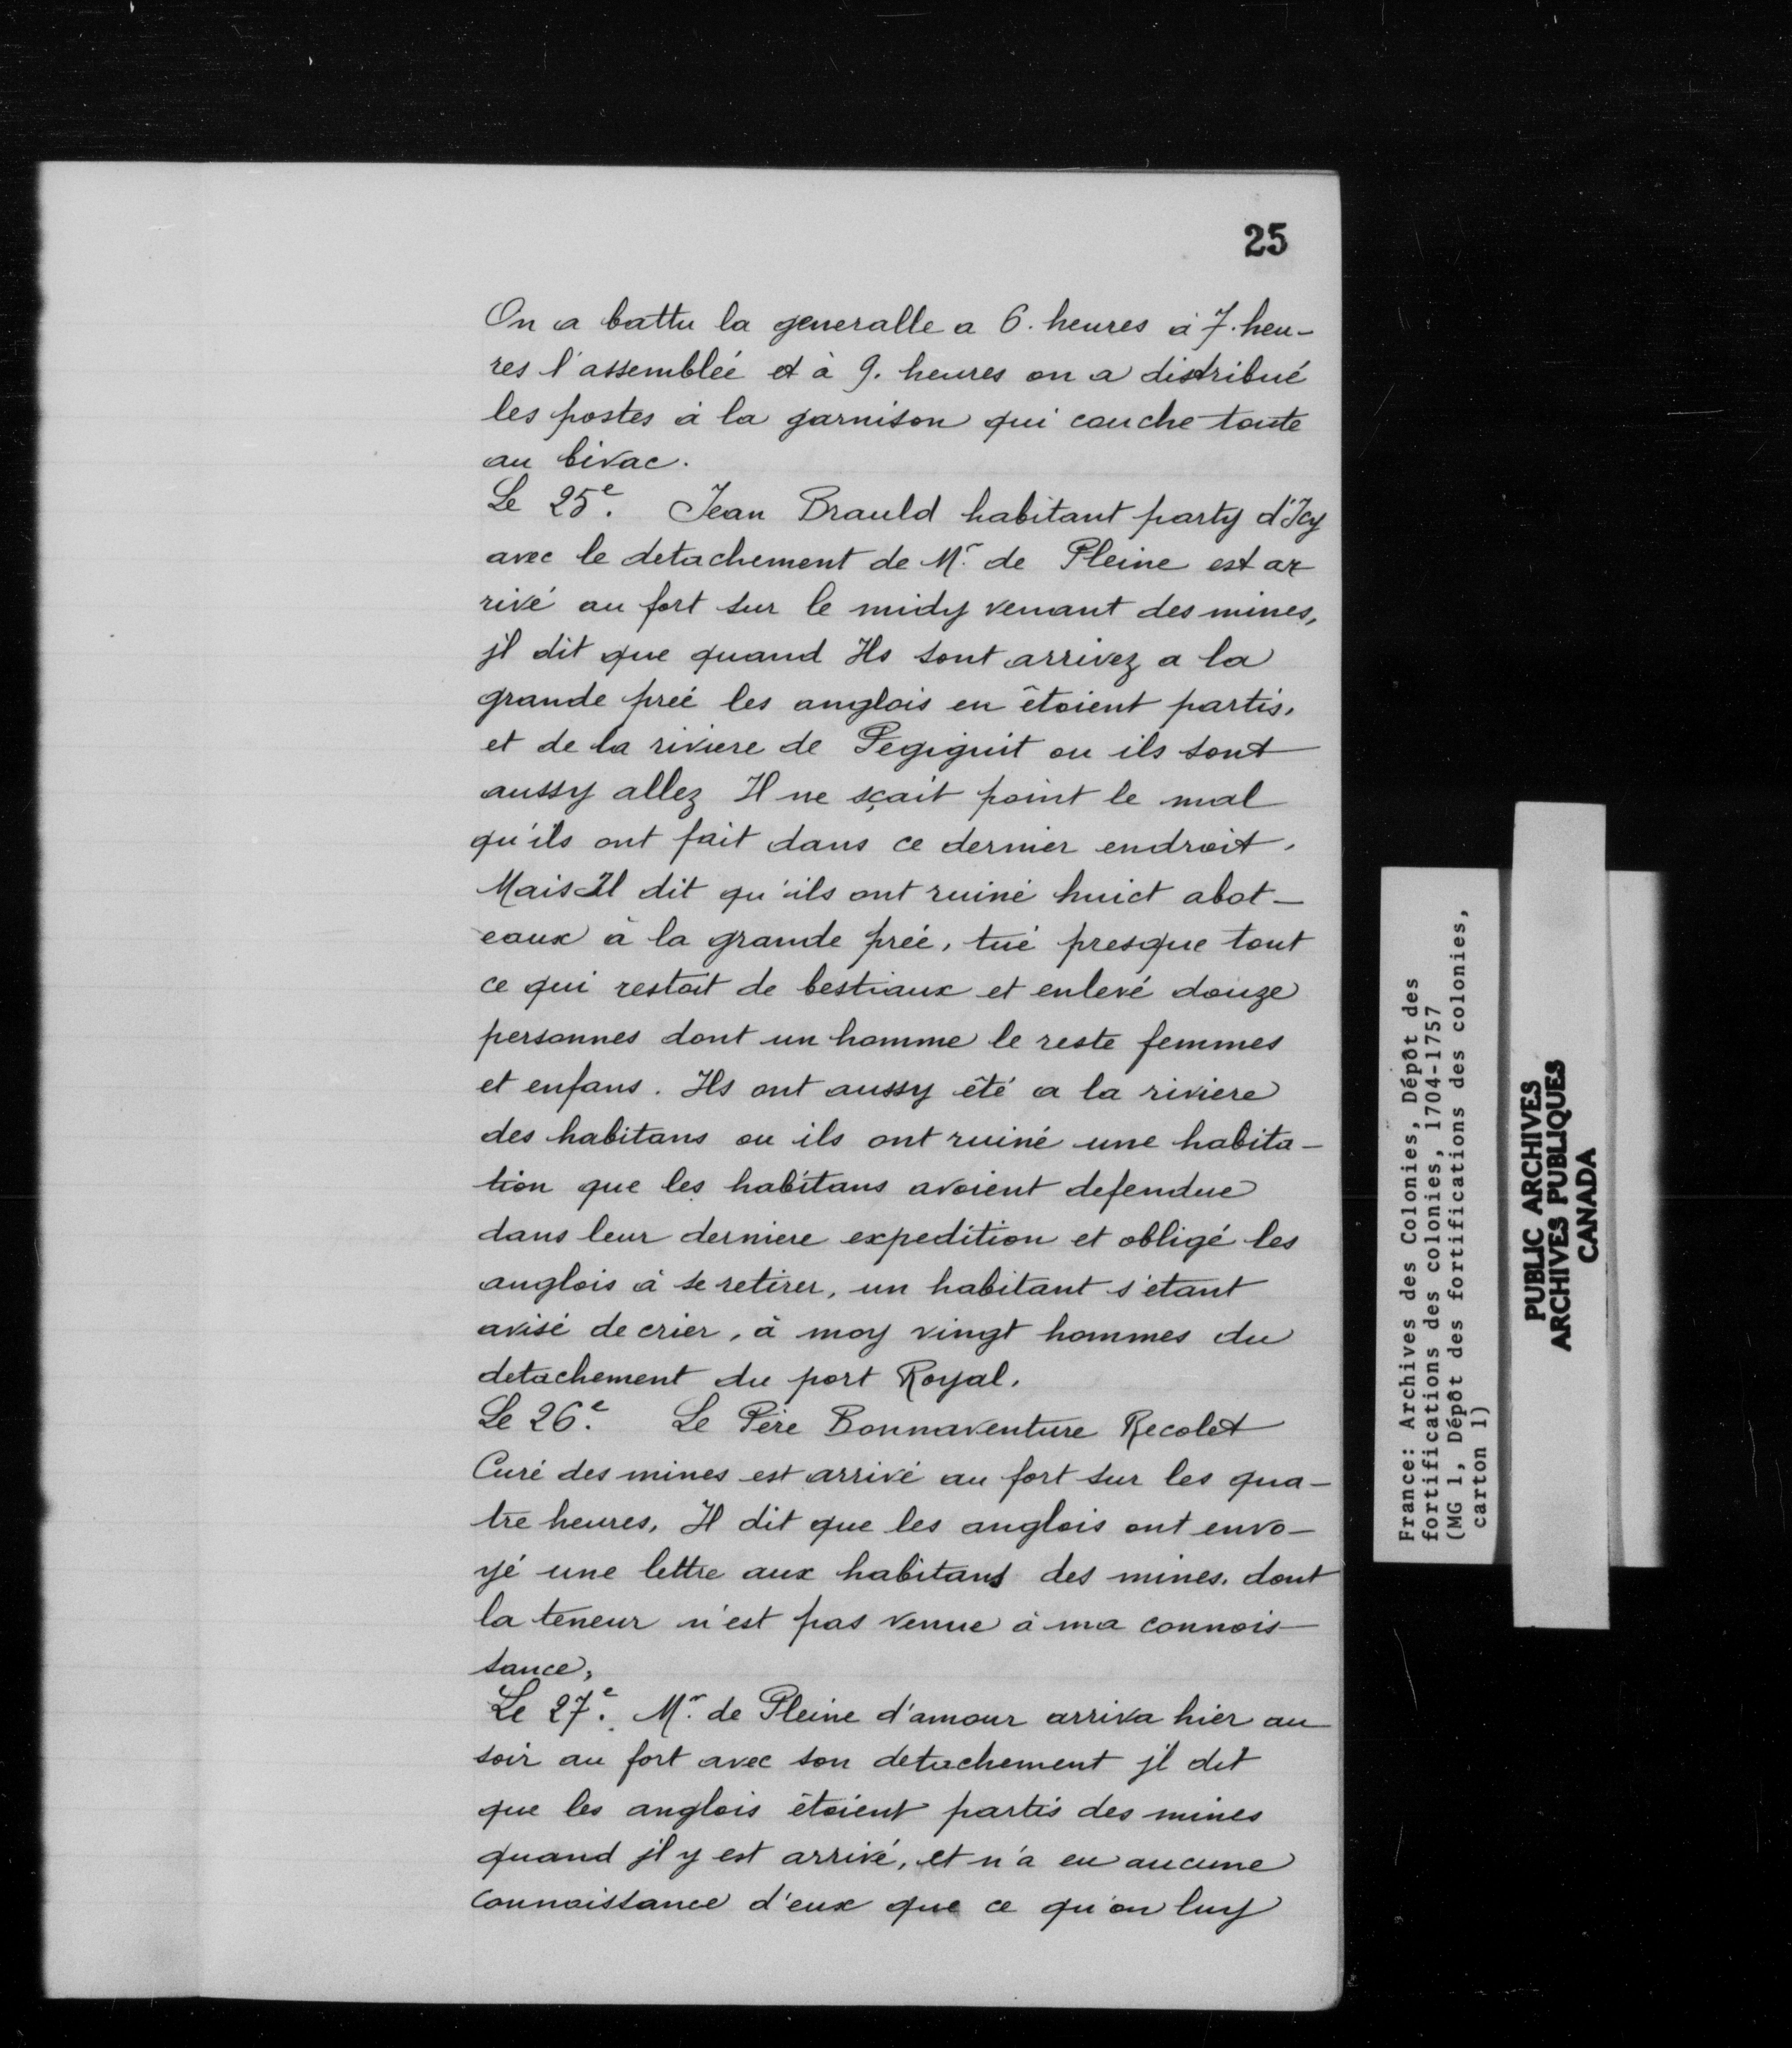 25
On a battu la generalle a 6. heures à 7. heu-
res l'assemblée et à 9. heures on a distribué
les postes à la garnison qui couche toute
au bivac.
Le 25e. Jean Brauld habitant party d'Icy
avec le detachement de Mr. de Pleine est ar
rivé au fort sur le midy venant des mines,
jl dit que quand Ils sont arrivez a la
grande preé les anglois en êtoient partis,
et de la riviere de Pegiguit ou ils sont
aussy allez Il ne sçait point le mal
qu'ils ont fait dans ce dernier endroit.
Mais Il dit qu'ils ont ruiné huict abot-
eaux à la grande preé, tué presque tout
ce qui restoit de bestiaux et enlevé douze
personnes dont un homme le reste femmes
et enfans. Ils ont aussy êté a la riviere
des habitans ou ils ont ruiné une habita-
tion que les habitans avoient defendue
dans leur derniere expedition et obligé les
anglois à se retirer, un habitant s'etant
avisé de crier, à moy vingt hommes du
detachement du port Royal.
Le 26e. Le Père Bonnaventure Recolet
Curé des mines est arrivé au fort sur les qua-
tre heures, Il dit que les anglois ont envo-
yé une lettre aux habitans des mines, dont
la teneur n'est pas venue à ma connois-
sance,
Le 27e. Mr. de Pleine d'amour arriva hier au
soir au fort avec son detachement jl dit
que les anglois êtoient partis des mines
quand jl y est arrivé, et n'a eu aucune
connoissance d'eux que ce qu'on luy
France: Archives des Colonies, Dépôt des
fortifications des colonies, 1704-1757
(MG 1, Dépôt des fortifications des colonies,
carton 1)
PUBLIC ARCHIVES
ARCHIVES PUBLIQUES
CANADA